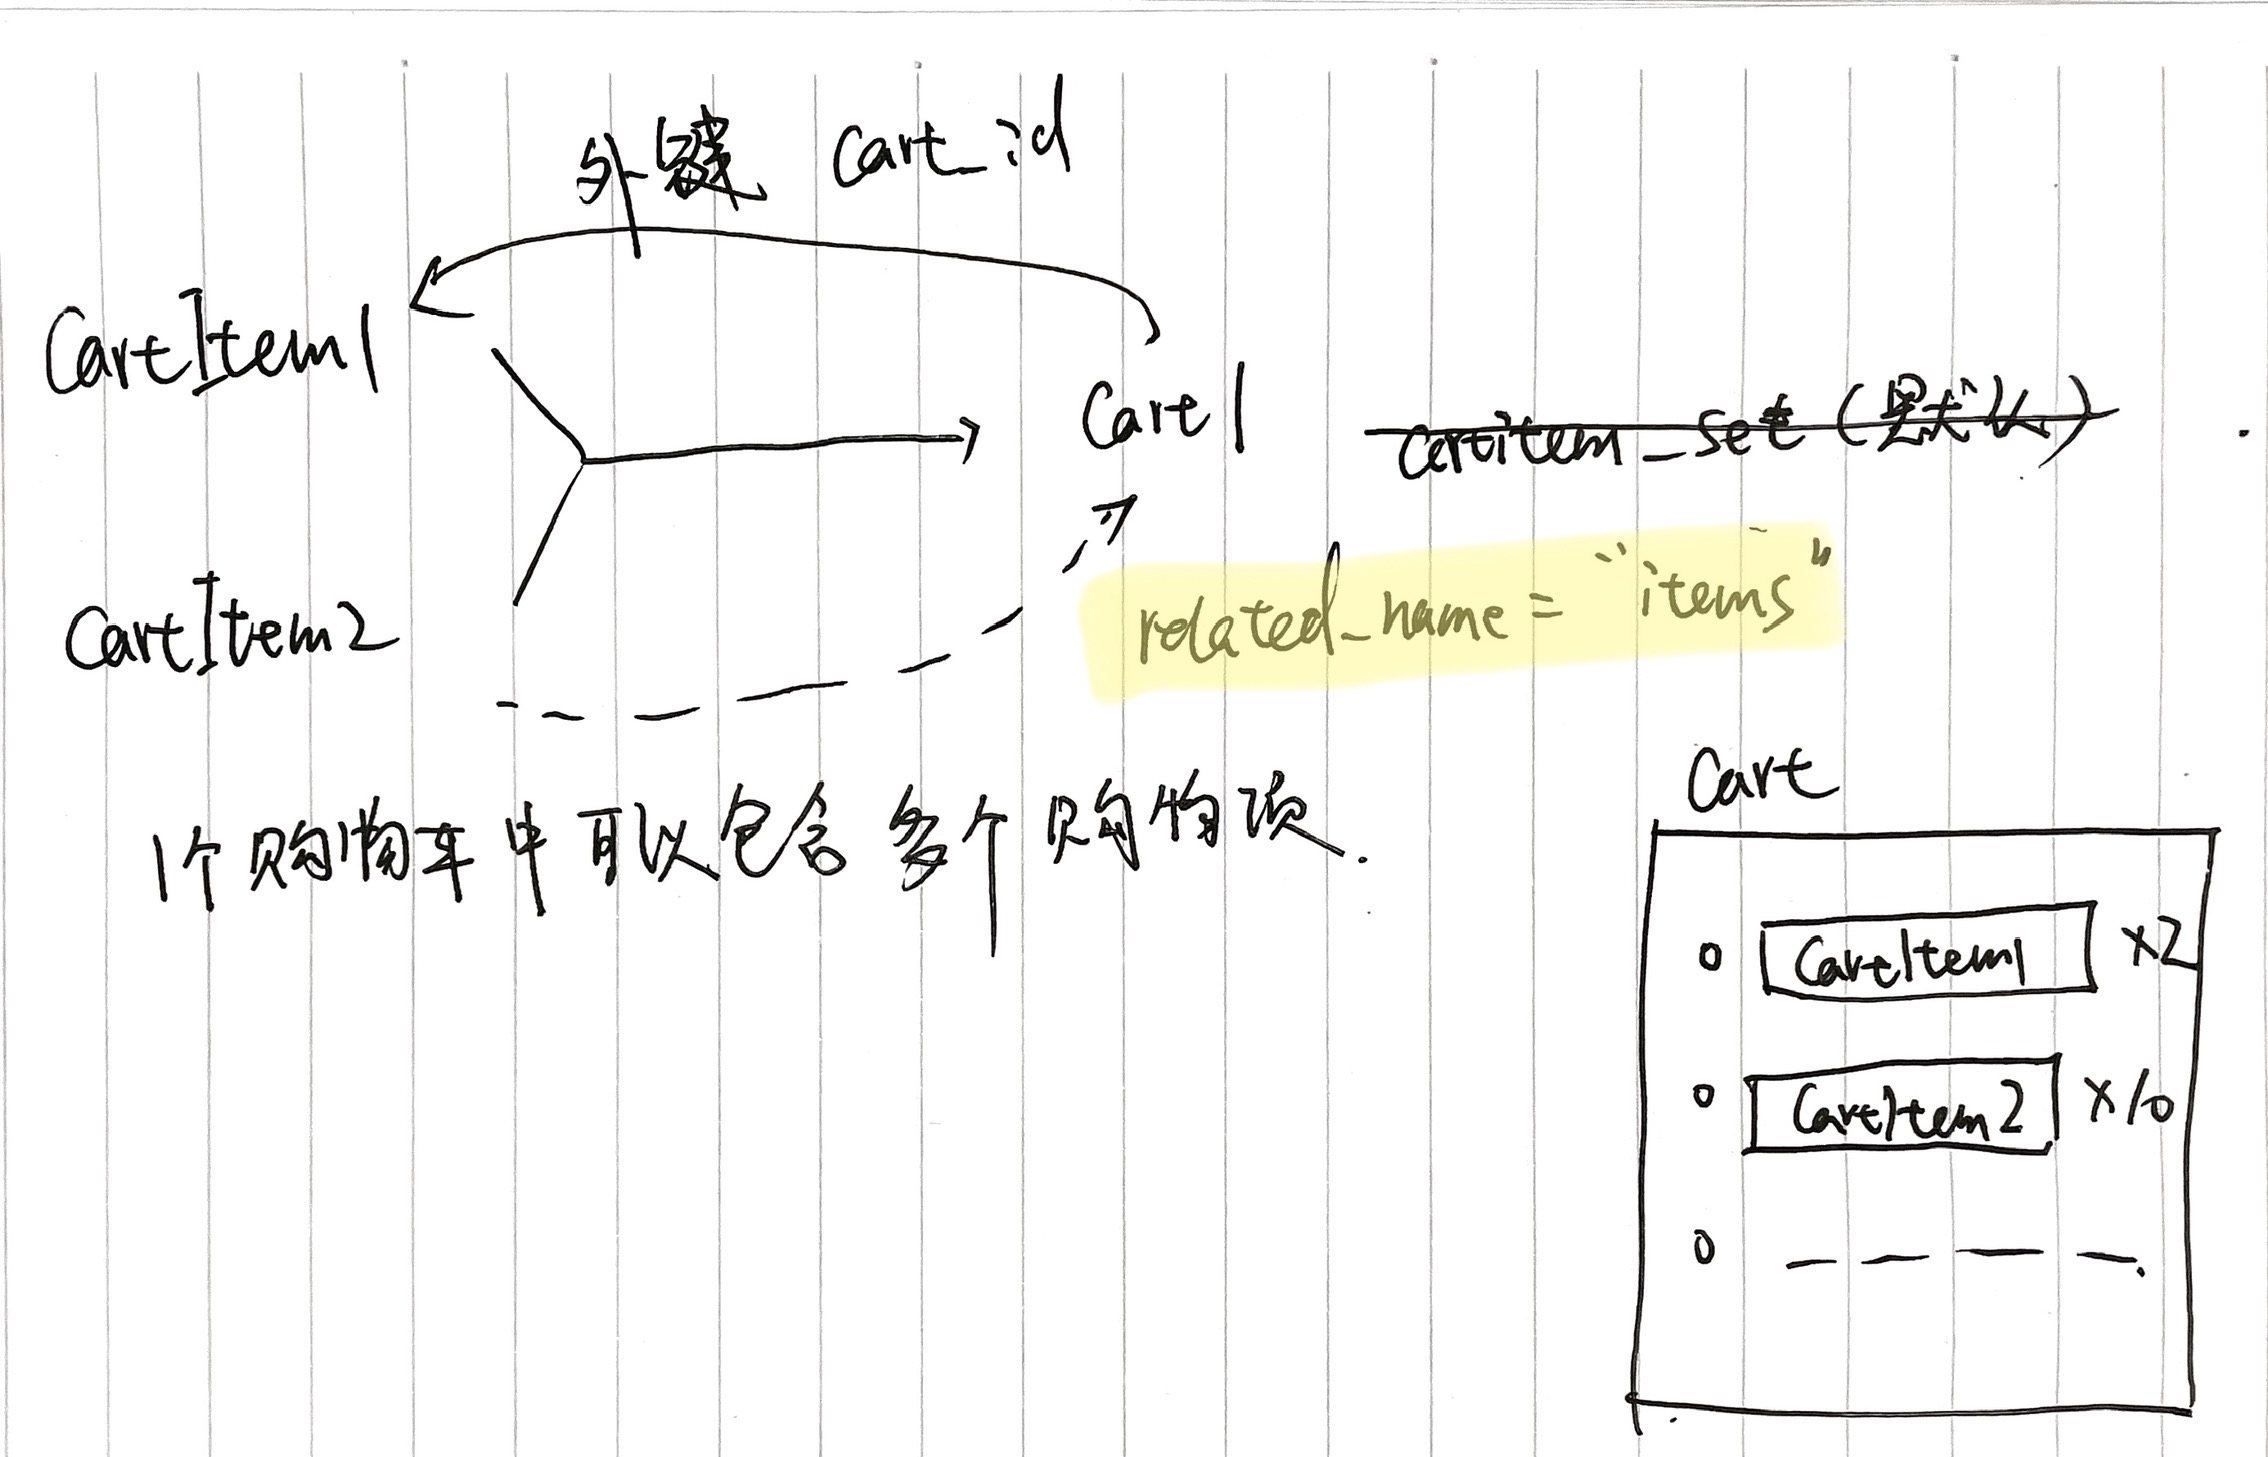 外键 cart_id
CartItem1
Cart1
cartitem_set (默认)
CartItem2
related_name = "items"
1个购物车中可以包含多个购物项.
Cart
CartItem1 x2
CartItem2 x10